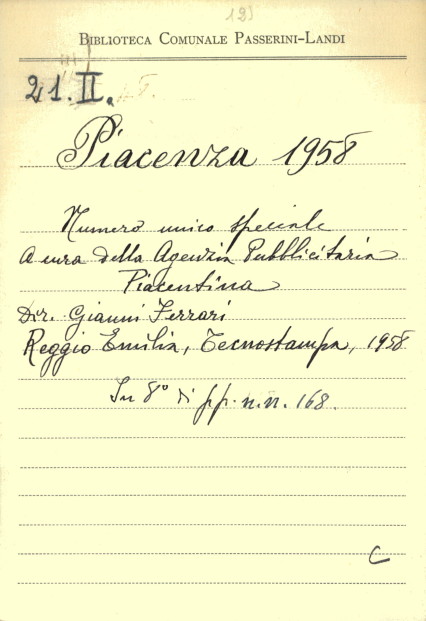 123
BIBLIOTECA COMUNALE PASSERINI-LANDI
21. II.
Piacenza 1958
Numero unico speciale
A cura della Agenzia Pubblicitaria
Piacentina
Dir. Gianni Ferrari
Reggio Emilia, Tecnostampa, 1958
In 8° di pp. n.n. 168.
C